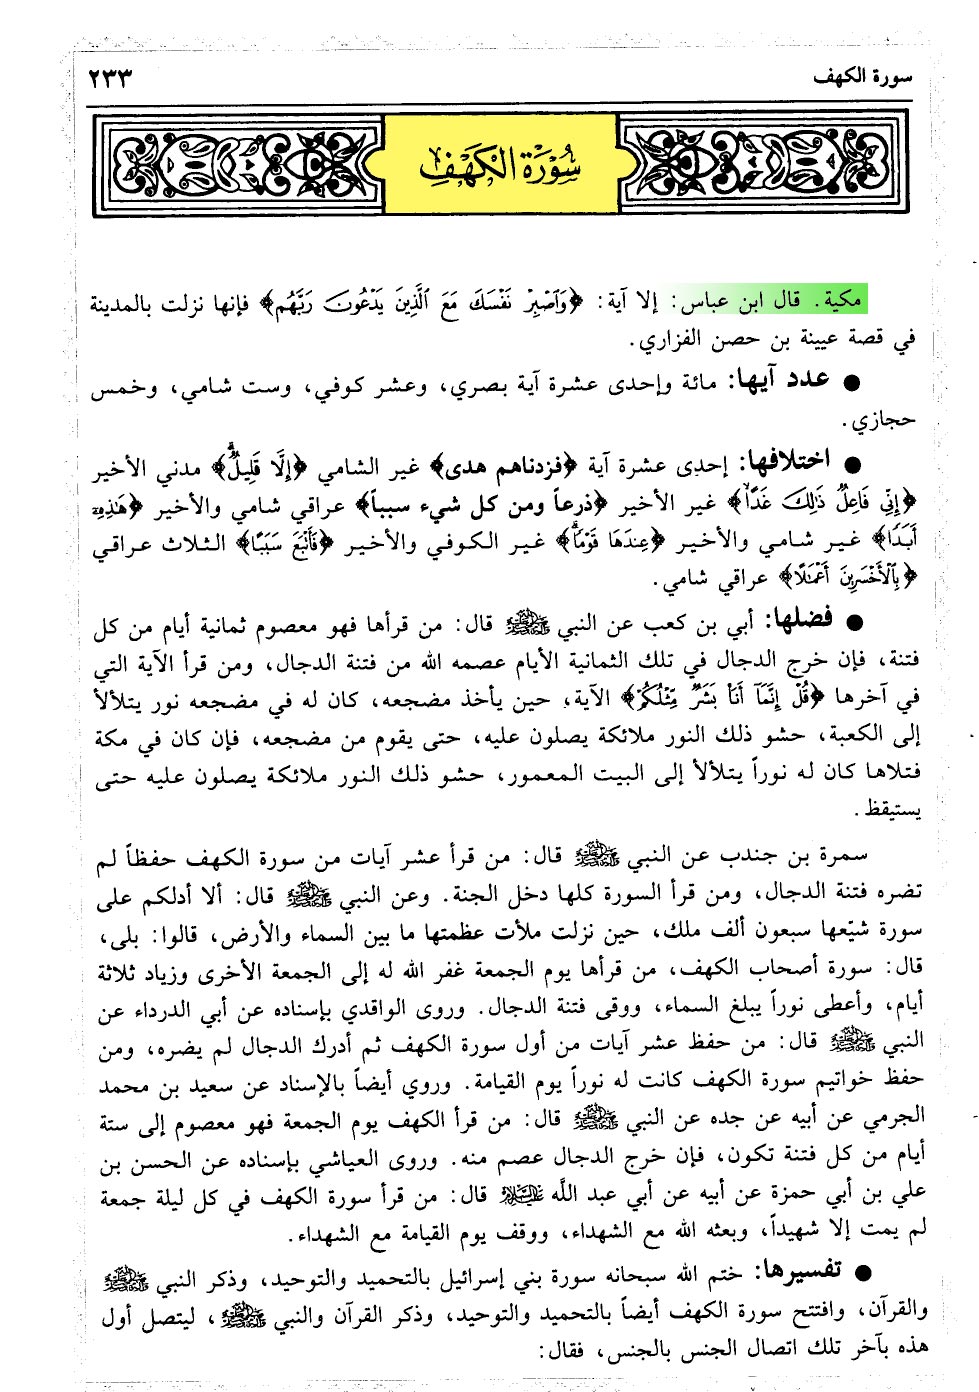 سورة الكهف ٢٣٣
سُورَة الكَهفِ
مكية. قال ابن عباس: إلا آية: ﴿وَاصْبِرْ نَفْسَكَ مَعَ الَّذِينَ يَدْعُونَ رَبَّهُم﴾ فإنها نزلت بالمدينة
في قصة عيينة بن حصن الفزاري.
● عدد آيها: مائة وإحدى عشرة آية بصري، وعشر كوفي، وست شامي، وخمس
حجازي.
● اختلافها: إحدى عشرة آية ﴿فزدناهم هدى﴾ غير الشامي ﴿إِلَّا قَلِيلٌ﴾ مدني الأخير
﴿إِنِّي فَاعِلٌ ذَلِكَ غَدًا﴾ غير الأخير ﴿ذرعاً ومن كل شيء سبباً﴾ عراقي شامي والأخير ﴿هَذِهِ
أَبَدًا﴾ غير شامي والأخير ﴿عِندَهَا قَوْمًا﴾ غير الكوفي والأخير ﴿فَأَتْبَعَ سَبَبًا﴾ الثلاث عراقي
﴿بِالْأَخْسَرِينَ أَعْمَالًا﴾ عراقي شامي.
● فضلها: أبي بن كعب عن النبي ﷺ قال: من قرأها فهو معصوم ثمانية أيام من كل
فتنة، فإن خرج الدجال في تلك الثمانية الأيام عصمه الله من فتنة الدجال، ومن قرأ الآية التي
في آخرها ﴿قُلْ إِنَّمَا أَنَا بَشَرٌ مِّثْلُكُمْ﴾ الآية، حين يأخذ مضجعه، كان له في مضجعه نور يتلألأ
إلى الكعبة، حشو ذلك النور ملائكة يصلون عليه، حتى يقوم من مضجعه، فإن كان في مكة
فتلاها كان له نوراً يتلألأ إلى البيت المعمور، حشو ذلك النور ملائكة يصلون عليه حتى
يستيقظ.
سمرة بن جندب عن النبي ﷺ قال: من قرأ عشر آيات من سورة الكهف حفظاً لم
تضره فتنة الدجال، ومن قرأ السورة كلها دخل الجنة. وعن النبي ﷺ قال: ألا أدلكم على
سورة شيّعها سبعون ألف ملك، حين نزلت ملأت عظمتها ما بين السماء والأرض، قالوا: بلى،
قال: سورة أصحاب الكهف، من قرأها يوم الجمعة غفر الله له إلى الجمعة الأخرى وزياد ثلاثة
أيام، وأعطى نوراً يبلغ السماء، ووقى فتنة الدجال. وروى الواقدي بإسناده عن أبي الدرداء عن
النبي ﷺ قال: من حفظ عشر آيات من أول سورة الكهف ثم أدرك الدجال لم يضره، ومن
حفظ خواتيم سورة الكهف كانت له نوراً يوم القيامة. وروي أيضاً بالإسناد عن سعيد بن محمد
الجرمي عن أبيه عن جده عن النبي ﷺ قال: من قرأ الكهف يوم الجمعة فهو معصوم إلى ستة
أيام من كل فتنة تكون، فإن خرج الدجال عصم منه. وروى العياشي بإسناده عن الحسن بن
علي بن أبي حمزة عن أبيه عن أبي عبد اللَّه عليه السلام قال: من قرأ سورة الكهف في كل ليلة جمعة
لم يمت إلا شهيداً، وبعثه الله مع الشهداء، ووقف يوم القيامة مع الشهداء.
● تفسيرها: ختم الله سبحانه سورة بني إسرائيل بالتحميد والتوحيد، وذكر النبي ﷺ
والقرآن، وافتتح سورة الكهف أيضاً بالتحميد والتوحيد، وذكر القرآن والنبي ﷺ، ليتصل أول
هذه بآخر تلك اتصال الجنس بالجنس، فقال: